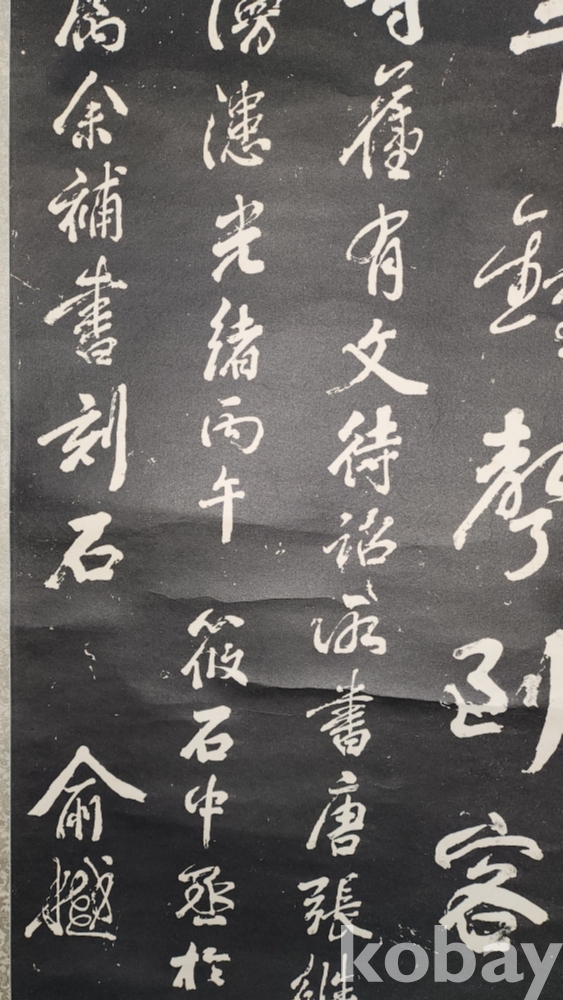 鐘聲到客
寺舊有文待詔所書唐張繼
漫漶光緒丙午筱石中丞於
屬余補書刻石
俞樾
kobay